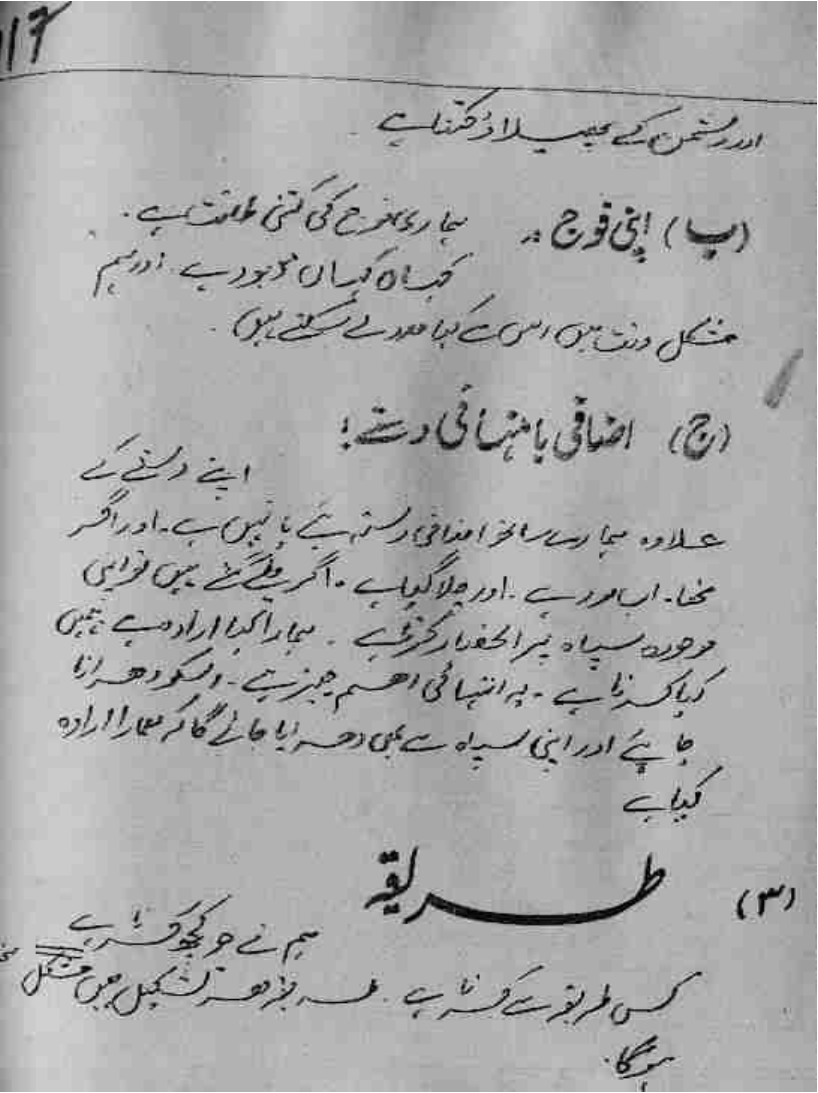 117
اور دشمن کے پھیلاؤ کتنا ہے
(ب) اپنی فوج :۔ ہماری فوج کی کتنی طاقت ہے۔
کہاں کہاں موجود ہے۔ اور ہم
مشکل وقت میں اس سے کیا مدد لے سکتے ہیں۔
(ج) اضافی یا منہائی دستے :
اپنے دستے کے
علاوہ ہمارے ساتھ اضافی دستہ ہے یا نہیں ہے۔ اور اگر
تھا۔ اب اور ہے۔ اور چلا گیا ہے۔ اگر چلے گئے ہیں تو اپنی
موجودہ سپاہ پر انحصار کرنی ہے۔ ہمارا کیا ارادہ ہے ہمیں
کیا کرنا ہے۔ یہ انتہائی اہم چیز ہے۔ اسکو دھرانا
چاہئے اور اپنی سپاہ سے بھی دھرایا جائے گا کہ ہمارا ارادہ
کیا ہے
(۳) طریقہ
ہم نے جو کچھ کرنا ہے
کس طریقہ سے کرنا ہے۔ طریقہ تشکیل میں مشکل
ہوگا۔